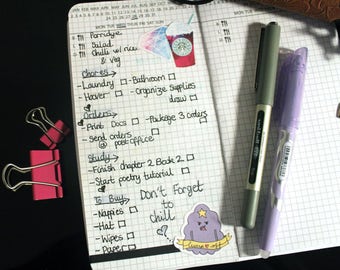 Porridge
Salad
Chilli w/ rice
& veg
Chores
- Laundry - Bathroom
- Hoover - Organize Supplies
draw
Orders
- Print Docs - Package 3 orders
- Send orders
@ post office
Study
- Finish chapter 2 Book 2
- Start poetry tutorial
To Buy
- Nappies
- Hat
- Wipes
- Paper
Don't Forget
to
chill